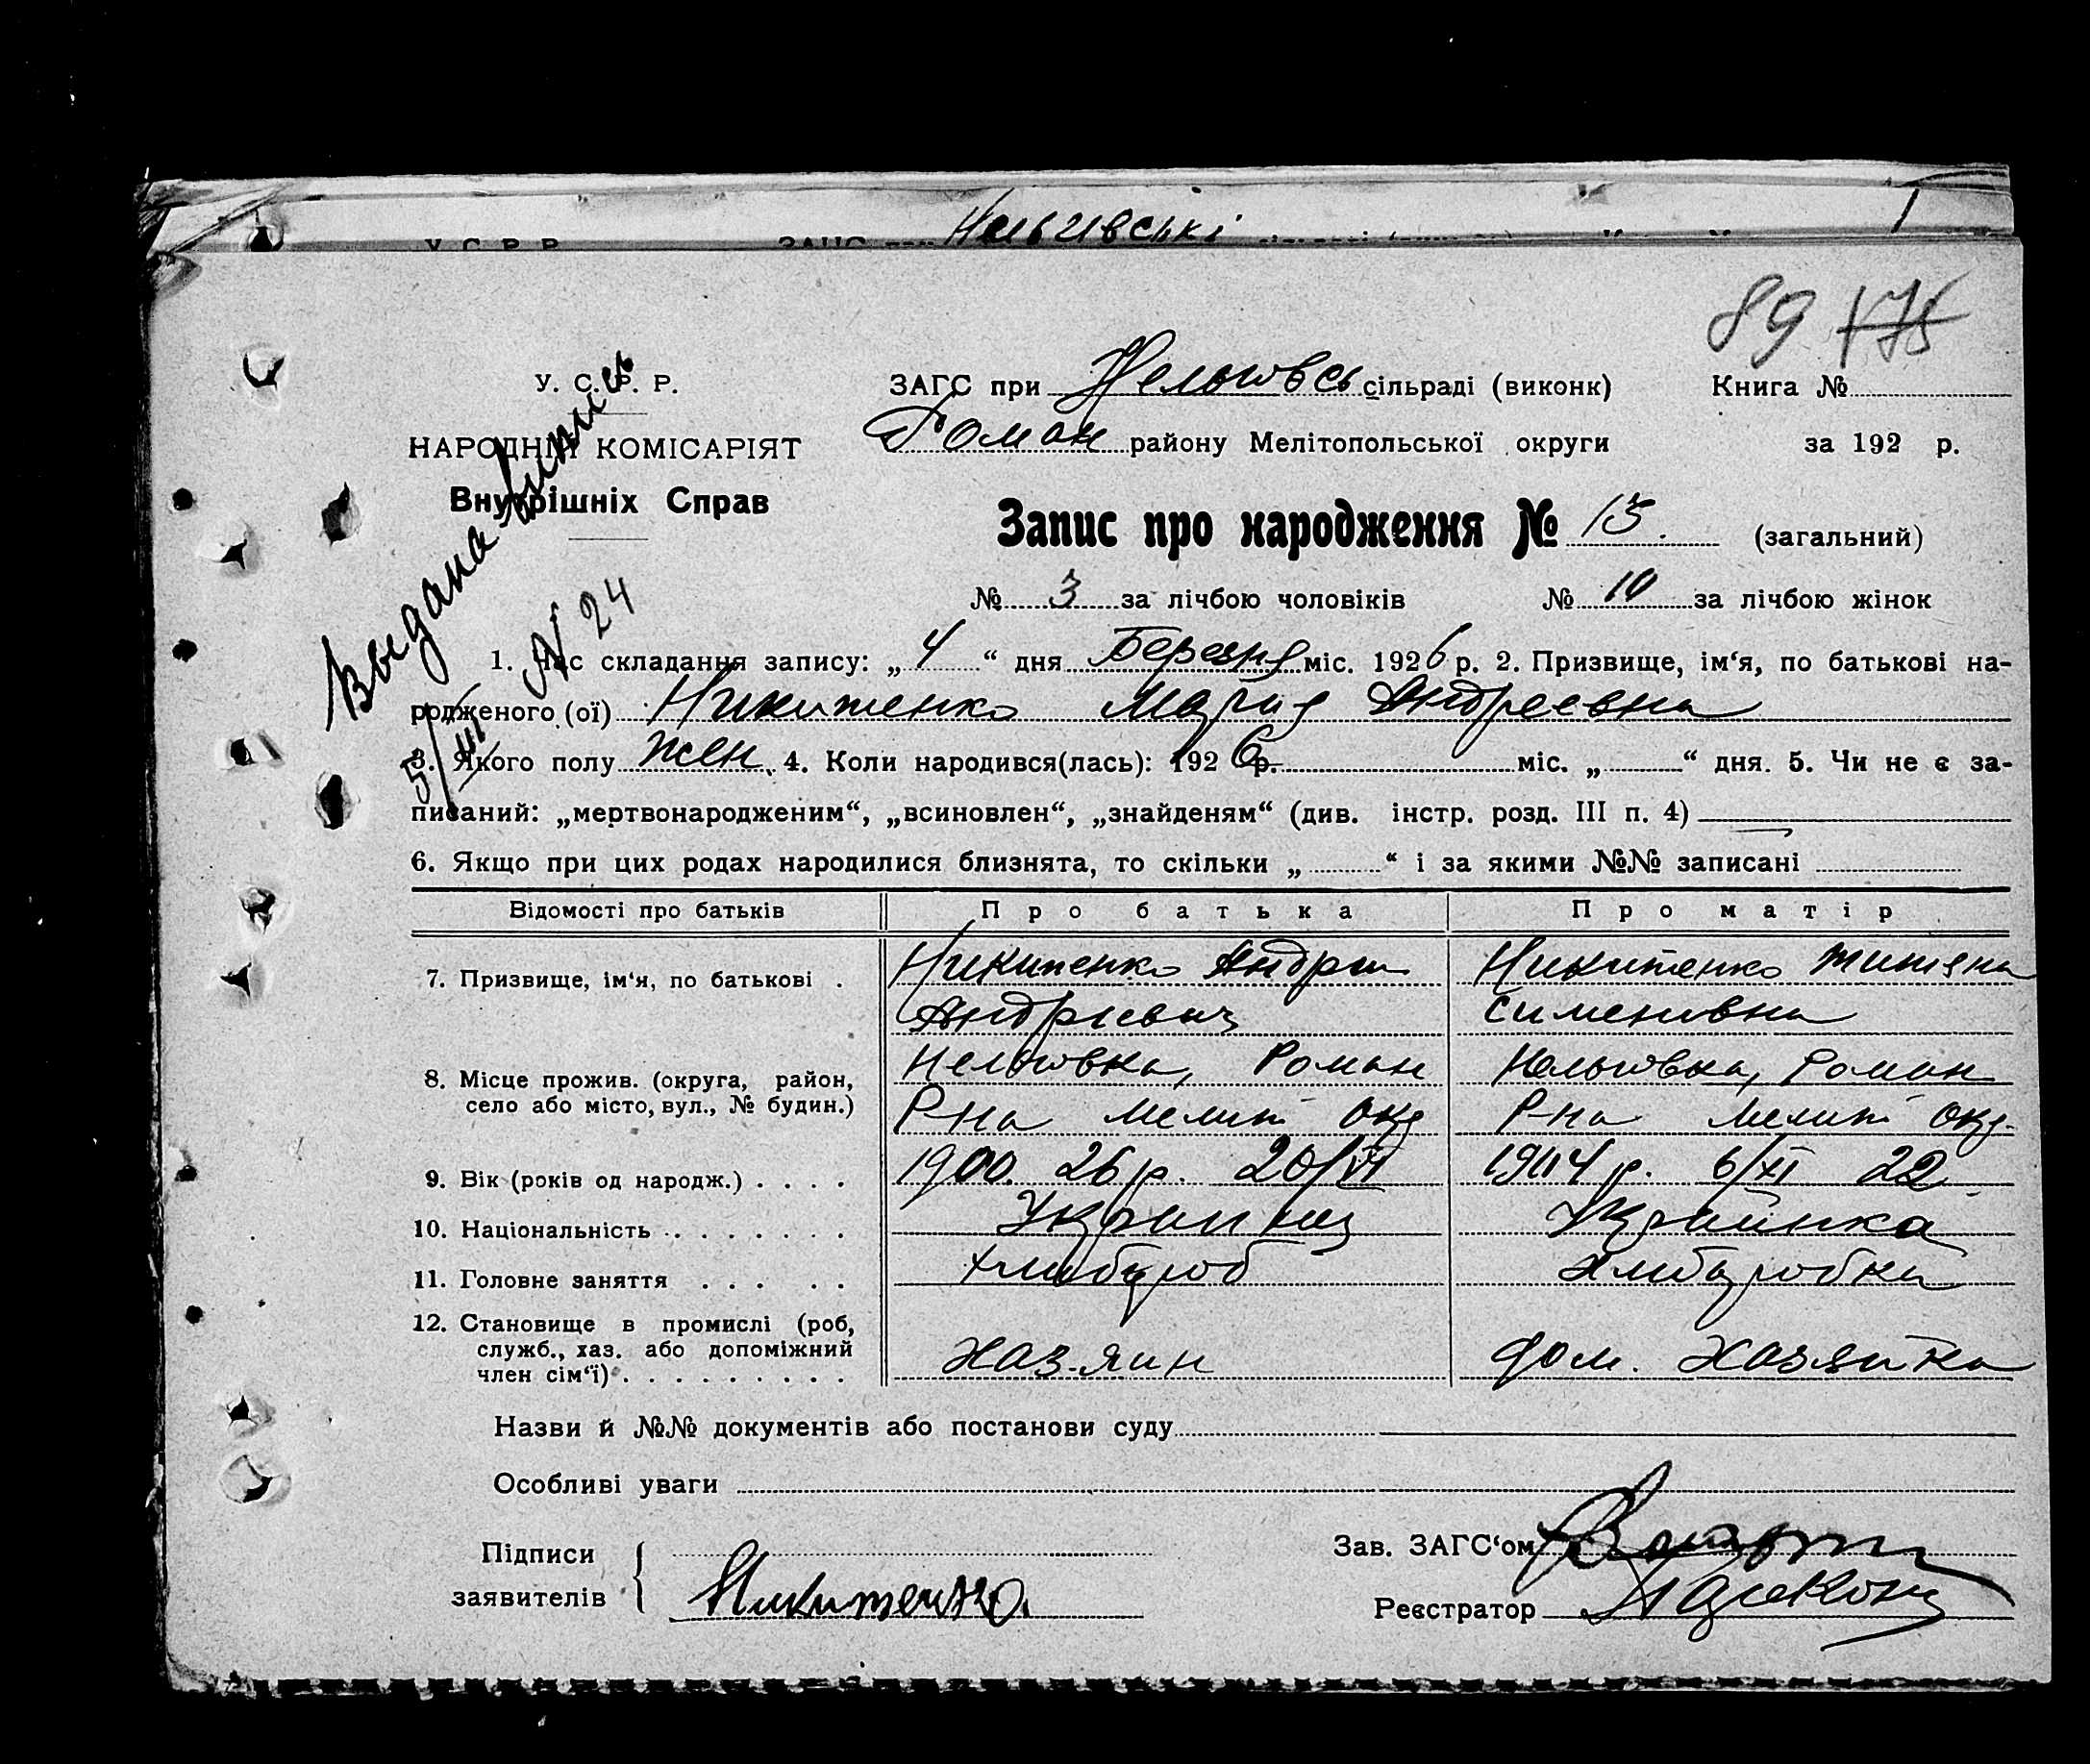 Нельгівські
1
89 175
У. С. Р. Р.
ЗАГС при Нельговсь сільраді (виконк)
Книга №
НАРОДНІЙ КОМІСАРІЯТ
Роман району Мелітопольської округи
за 192 р.
Внутрішніх Справ
Запис про народження № 13. (загальний)
№ 3 за лічбою чоловіків № 10 за лічбою жінок
Выдана выпись
N 24
1. Час складання запису: „ 4 “ дня Березня міс. 1926 р. 2. Призвище, ім‘я, по батькові на-
родженого (ої) Никитенко Мария Андреевна
3. Якого полу жен. 4. Коли народився(лась): 1926 р. міс. „ “ дня. 5. Чи не є за-
писаний: „мертвонародженим“, „всиновлен“, „знайденям“ (див. інстр. розд. III п. 4)
6. Якщо при цих родах народилися близнята, то скільки „ “ і за якими №№ записані
Відомості про батьків
Про батька
Про матір
7. Призвище, ім‘я, по батькові .
Никитенко Андрий
Андриевич
Никитенко Титяна
Сименивна
8. Місце прожив. (округа, район,
село або місто, вул., № будин.)
Нельговка, Роман
Р-на Мелит Окр
Нельговка, Роман
Р-на Мелит Окр.
9. Вік (років од народж.) . . . .
1900. 26 р. 20/VI
1904 р. 6/XI 22
10. Національність . . . . . . .
Украинец
Украинка
11. Головне заняття . . . . .
Хлибороб
Хлиборобка
12. Становище в промислі (роб,
служб., хаз. або допоміжний
член сім‘ї) . . . . . . . . .
Хаз-яин
дом. Хазяйка
Назви й №№ документів або постанови суду
Особливі уваги
Підписи
заявителів
Никитенко.
Зав. ЗАГС‘ом
Реєстратор